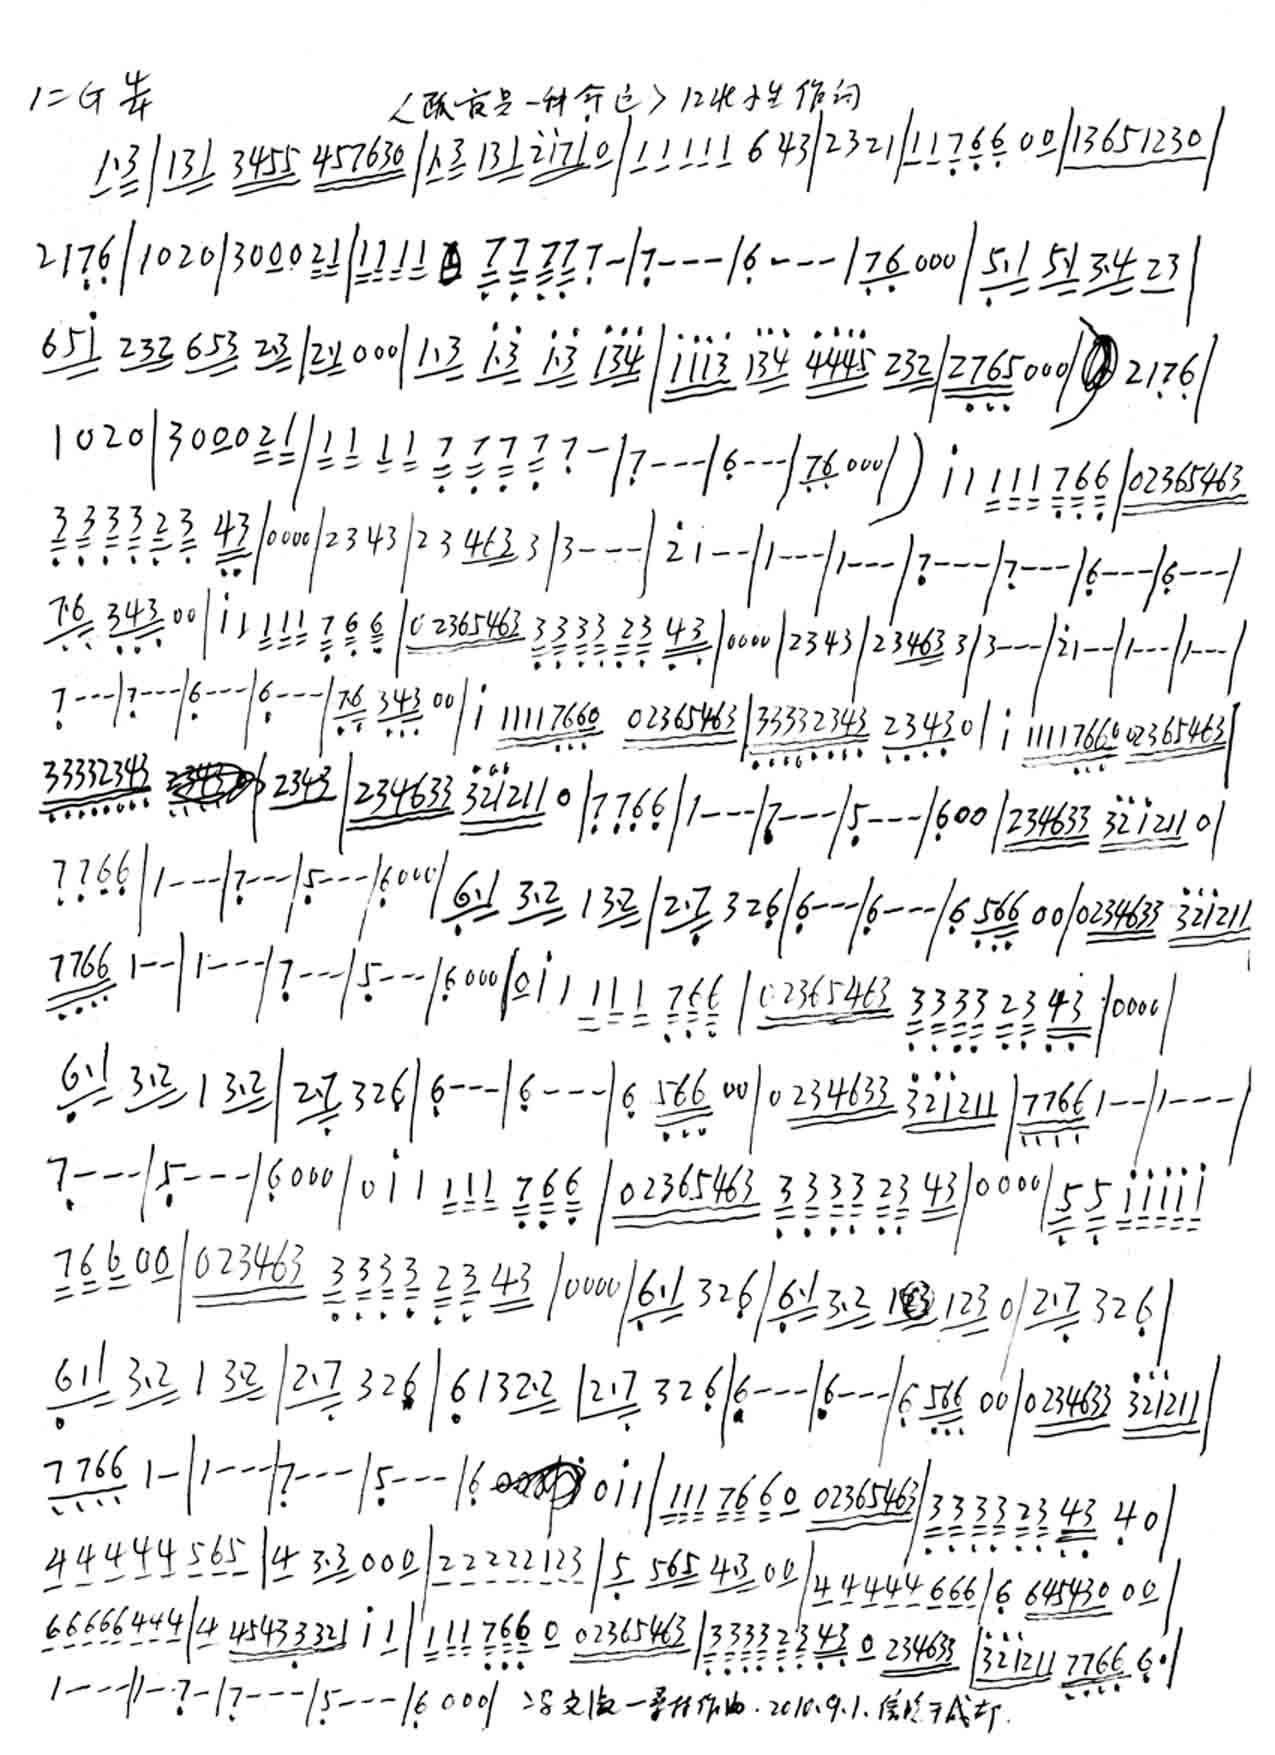 1=G 4/4 《 是一种命运》 作词
1·3|131 3455 457630|1·3 131 21710|11111 643|2321|1176600|13651230|
2176|1020|300021|1111 77777-|7----|6----|76000|5·1 5·1 3·4 23|
651 232 653 2·3|2·1000|1·3 1·3 1·3 134|1113 134 4445 232|2765000| 2176|
1020|300021|1111 77777-|7---|6---|76000|) 11 111 766|02365463
333323 43|0000|2343|23 463 3|3----|21--|1---|1---|7----|7---|6---|6---|
7·6 343 00|11 111 766|02365463 333323 43|0000|2343|23463 3|3---|21--|1---|1---|
7---|7---|6---|6---|7·6 343 00|1 11117660 02365463|33332343 23430|1 11117660 02365463|
33332343 2343|234633 3212110|7766|1---|7---|5---|600|234633 3212110|
7766|1---|7---|5---|6000|6·1 3·2 13·2|2·7 326|6---|6---|6 566 00|0234633 321211
7766 1--|1---|7---|5---|6000|011 111 766|02365463 333323 43|0000|
6·1 3·2 13·2|2·7 326|6---|6----|6 566 00|0234633 321211|7766 1--|1---|
7---|5----|6000|011 111 766|02365463 333323 43|0000|5511111
76600|023463 333323 43|0000|6·1 326|6·1 3·2 1 1230|2·7 326|
6·1 3·2 13·2|2·7 326|6132·2|2·7 326|6---|6---|6 566 00|0234633 321211|
7766 1-|1---|7---|5---|6 011|1117660 02365463|333323 43 40|
44444565|4 3·3 000|22222123|5 565 4·3 00|44444666|6 645430 00|
66666444|4 45433321 11|1117660 02365463|33332343 0 234633|321211 7766 6·|
1----|1-7-|7---|5---|6000| 作曲.2010.9.1.